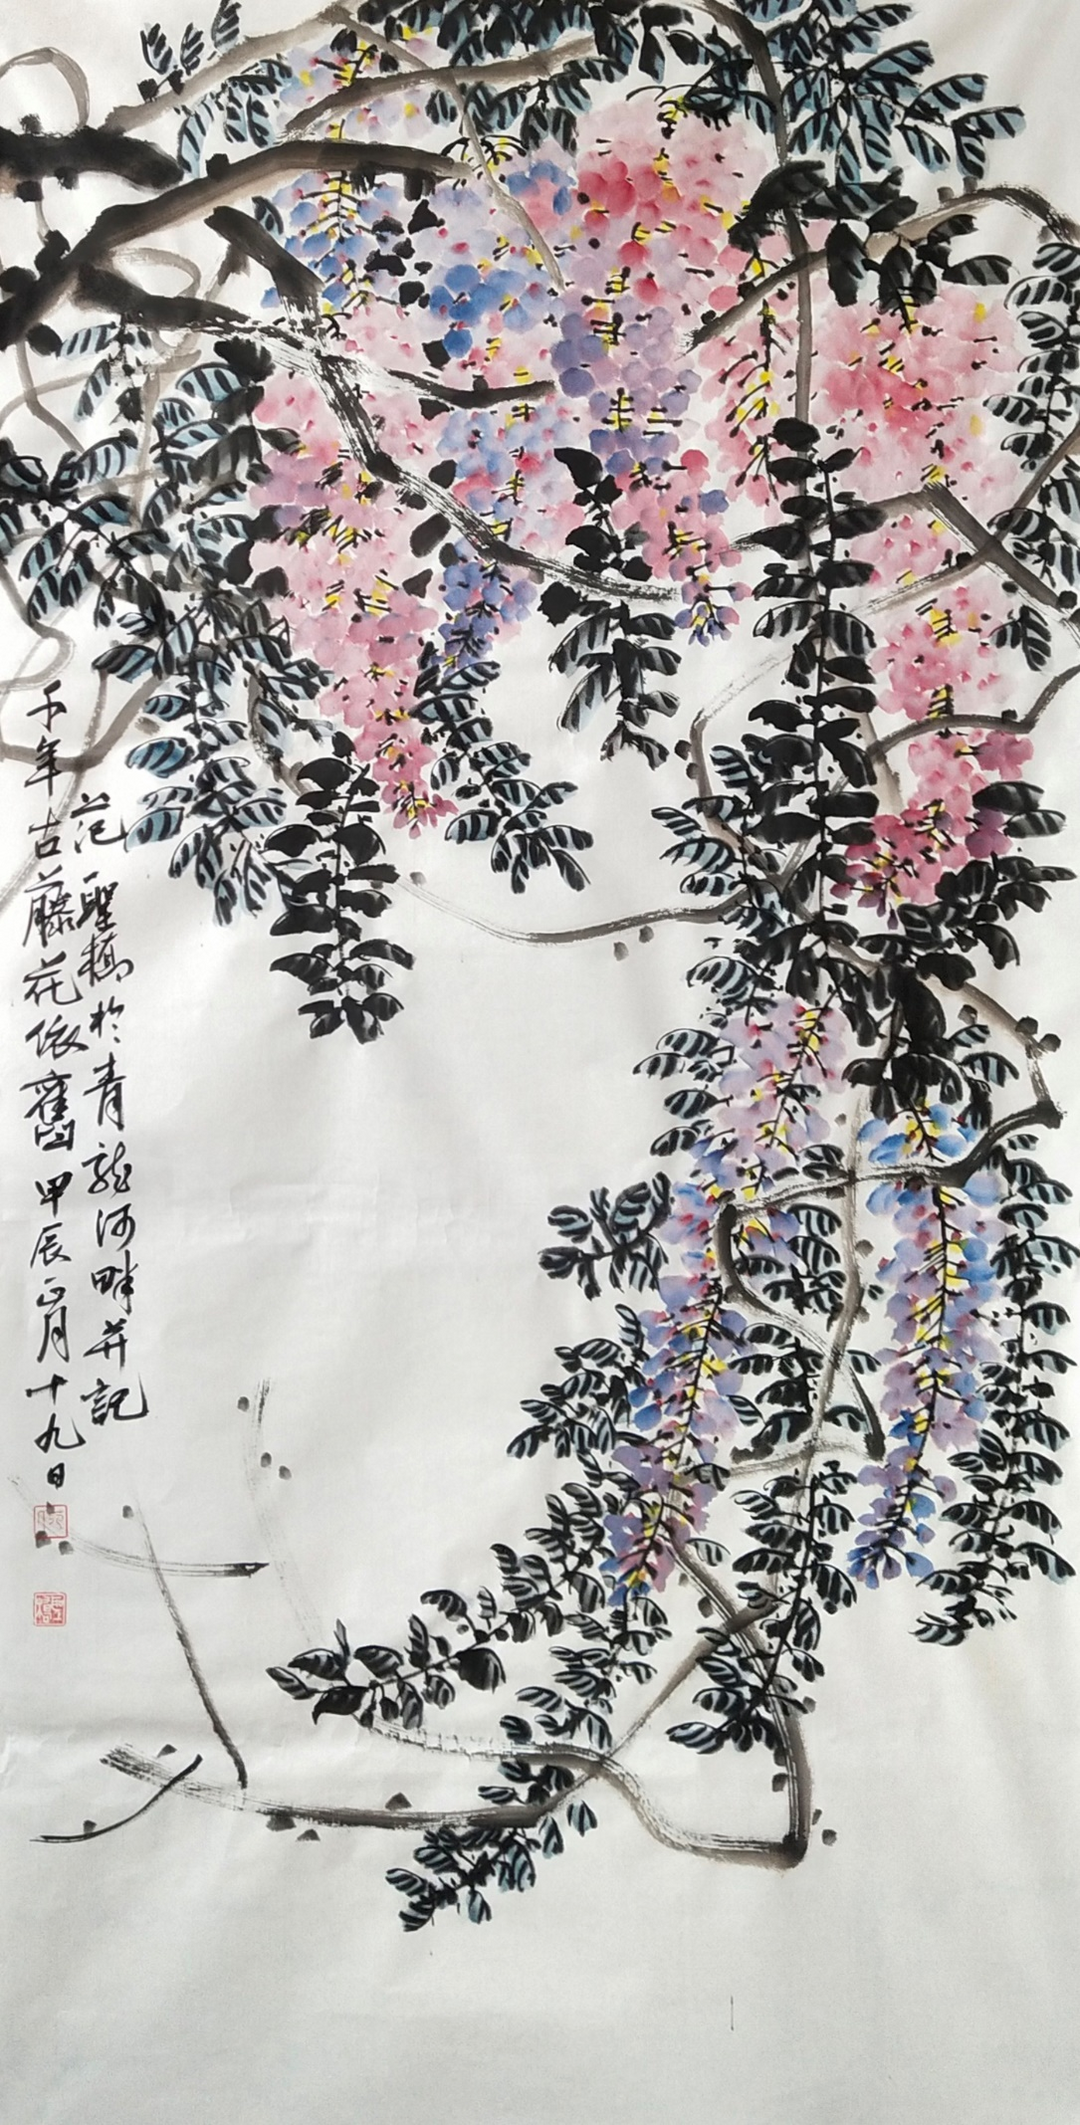 千年古藤花依舊甲辰正月十九日
范聖橋於青龍河畔并記